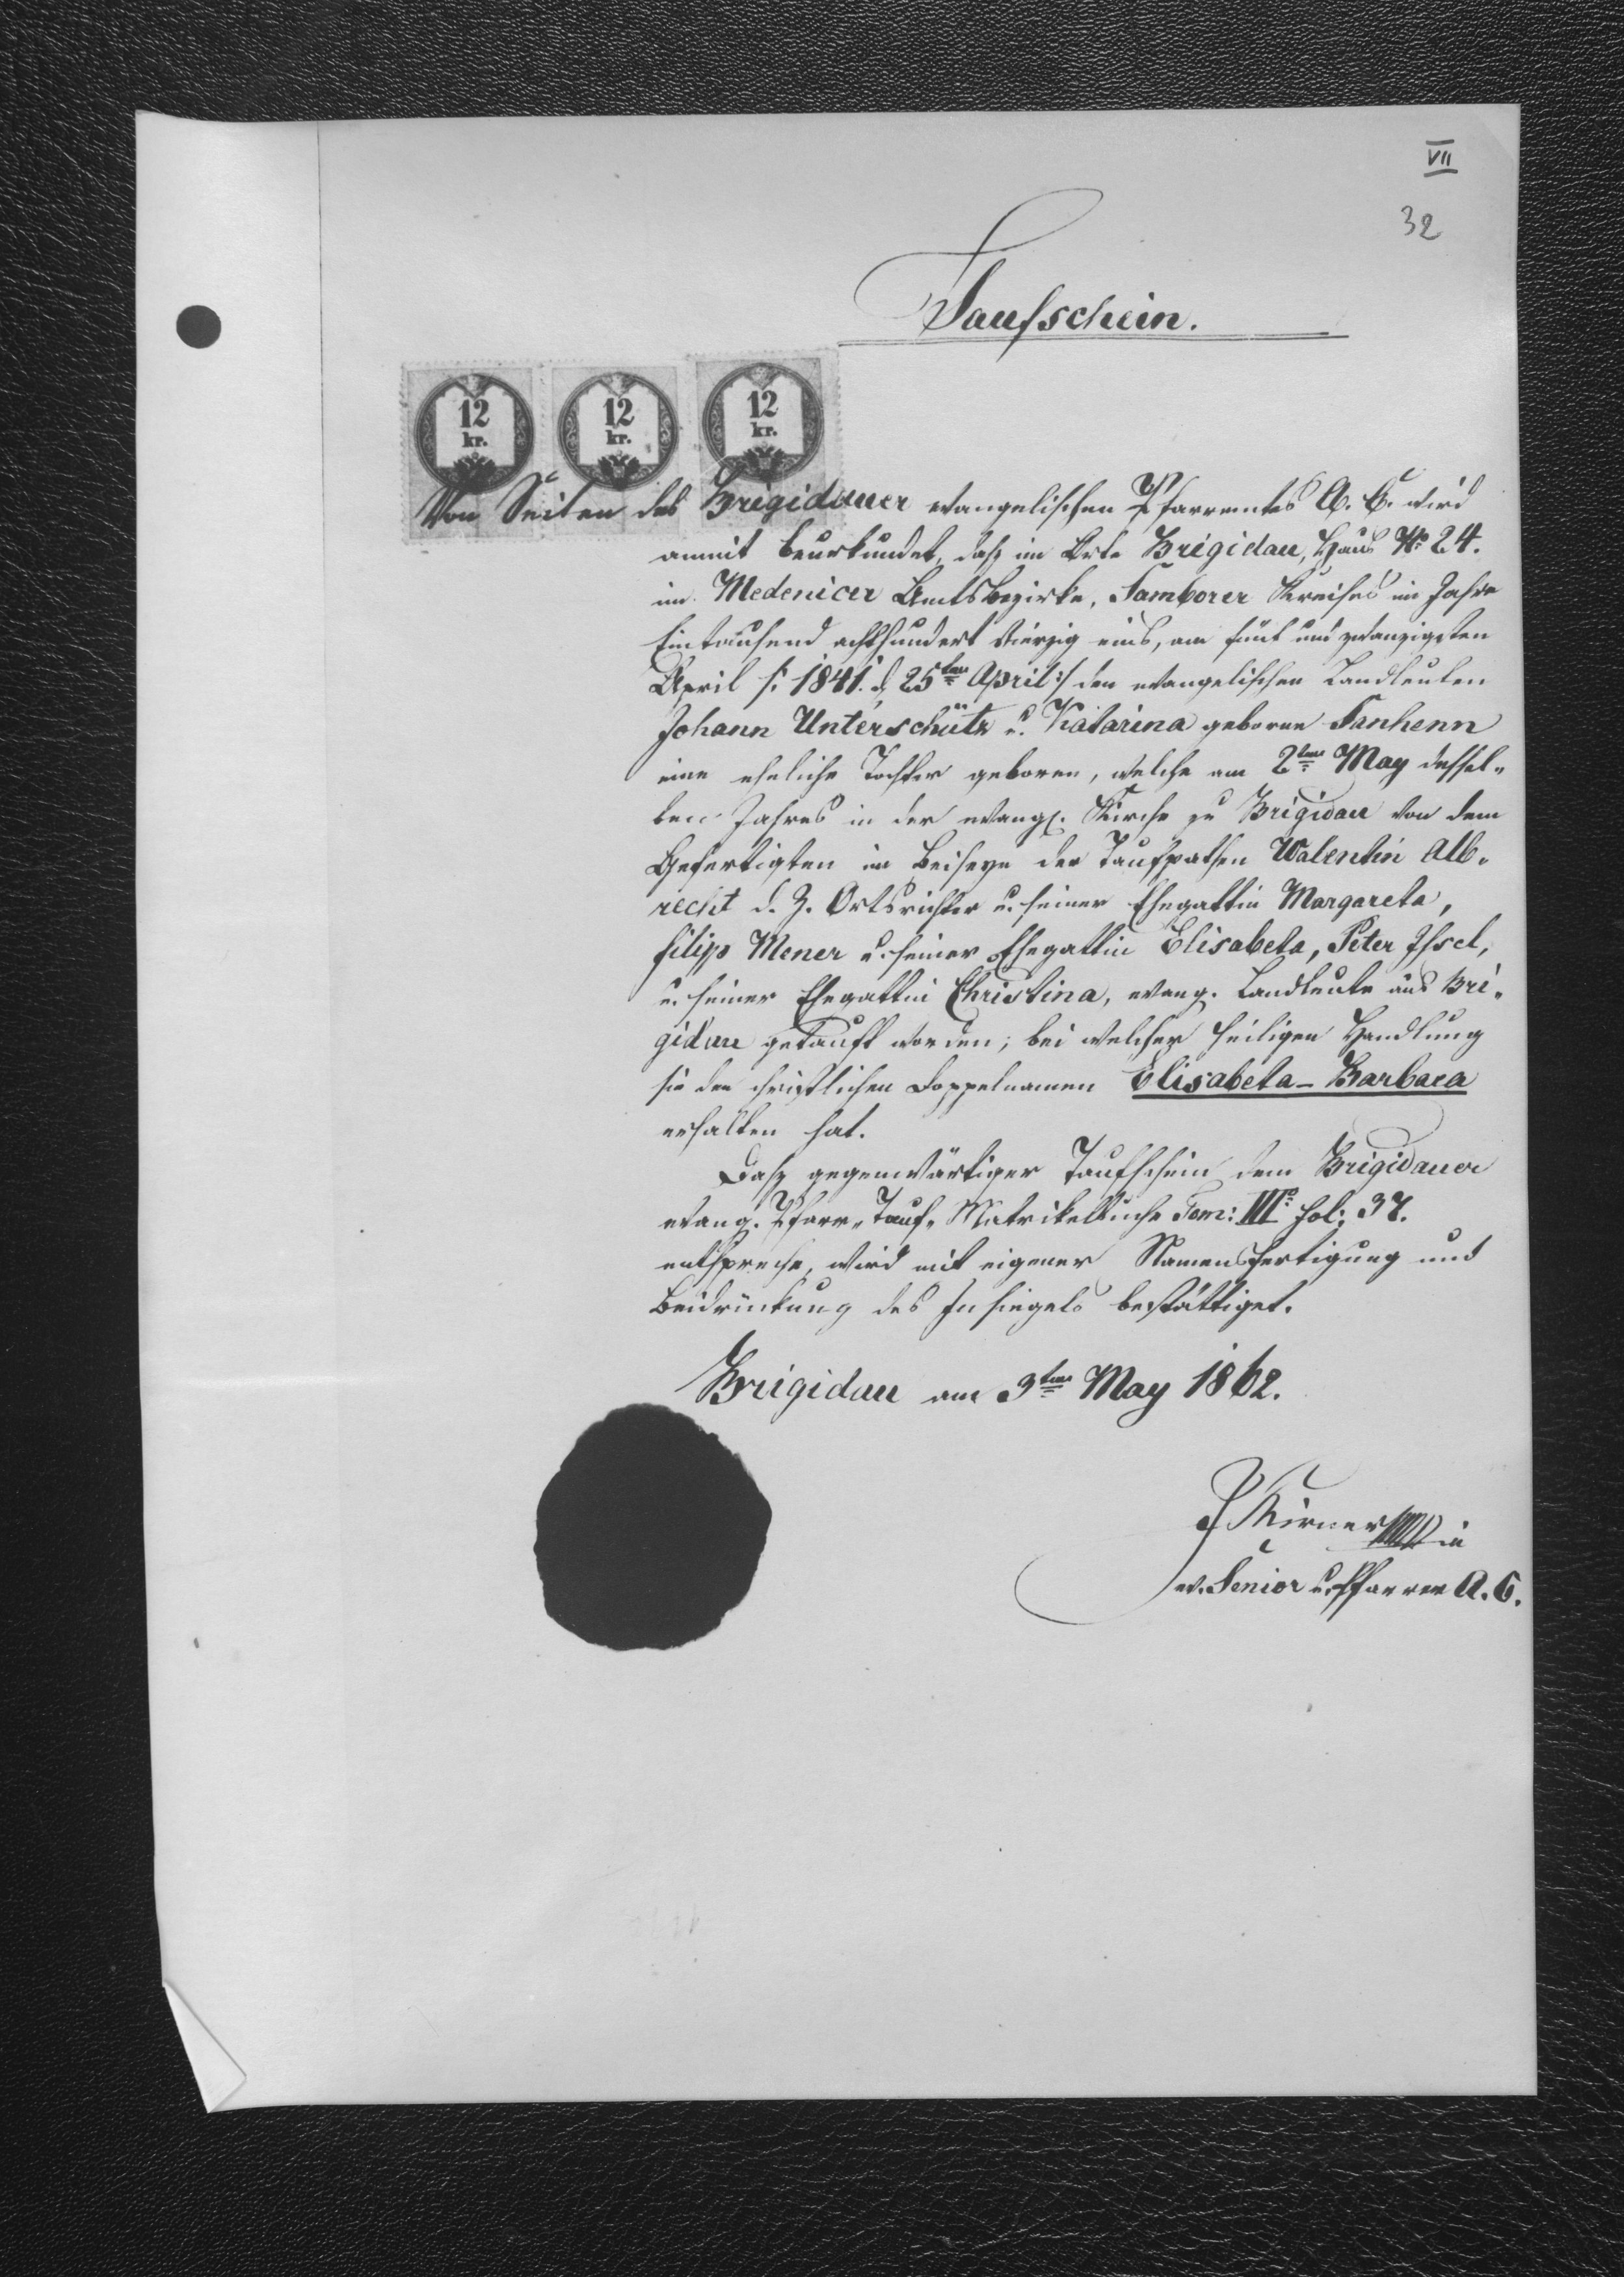 VII
32
Taufschein.
12 kr.
12 kr.
12 kr.
Von Seiten des Brigidauer evangelischen Pfarramtes A. C. wird
anmit beurkundet, daß im Orte Brigidau, Haus No 24.
im Medenicer Amtsbezirke, Samborer Kreises im Jahre
Eintausend achthundert vierzig eins, am fünf und zwanzigsten
April /: 1841. d. 25ten April :/ den evangelischen Landleuten
Johann Unterschütz u. Katarina geborne Sanhenn
eine eheliche Tochter geboren, welche am 2ten May dessel„
ben Jahres in der evang. Kirche zu Brigidau von dem
Gefertigten im Beiseyn der Taufpathen Walentin Alb„
recht d. Z. Ortsrichter u. seiner Ehegattin Margareta,
Filipp Mener u. seiner Ehegattin Elisabeta, Peter
u. seiner Ehegattin Christina, evang. Landleute aus Bri„
gidau getauft worden; bei welcher heiligen Handlung
sie den christlichen Doppelnamen Elisabeta - Barbara
erhalten hat.
Daß gegenwärtiger Taufschein dem Brigidauer
evang. Pfarr„Tauf„Matrikelbuche Tom: III fol: 37.
entspreche, wird mit eigener Namensfertigung und
Beidrückung des Insiegels bestättiget.
Brigidau am 3ten May 1862.
ev. Senior u. Pfarrer A. C.